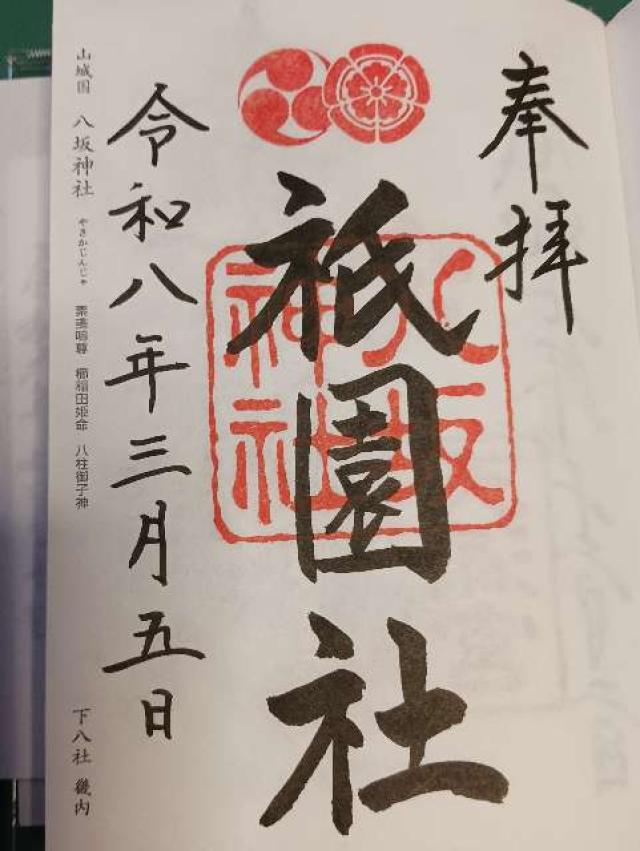 奉拝
八坂神社
祇園社
令和八年三月五日
山城国 八坂神社 やさかじんじゃ 素戔嗚尊 櫛稲田姫命 八柱御子神
下八社 畿内